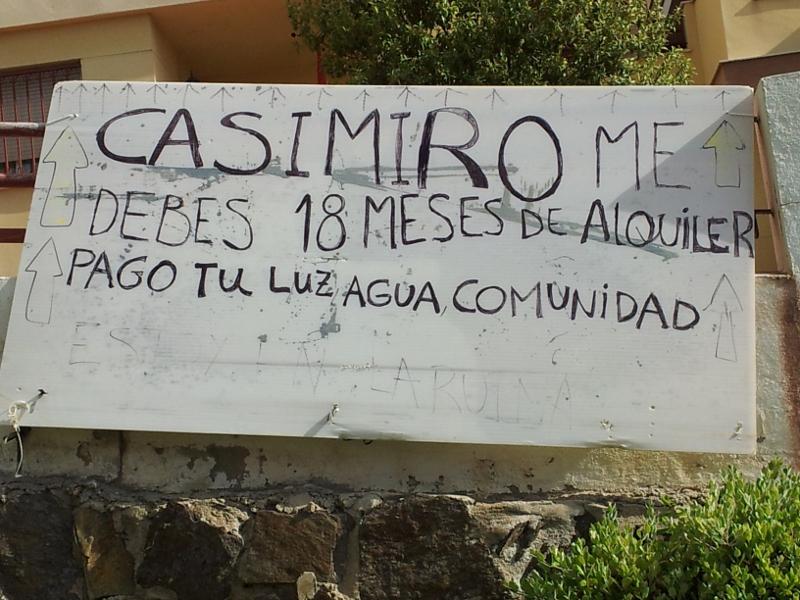 CASIMIRO ME
DEBES 18 MESES DE ALQUILER
PAGO TU LUZ AGUA, COMUNIDAD
LA RUINA